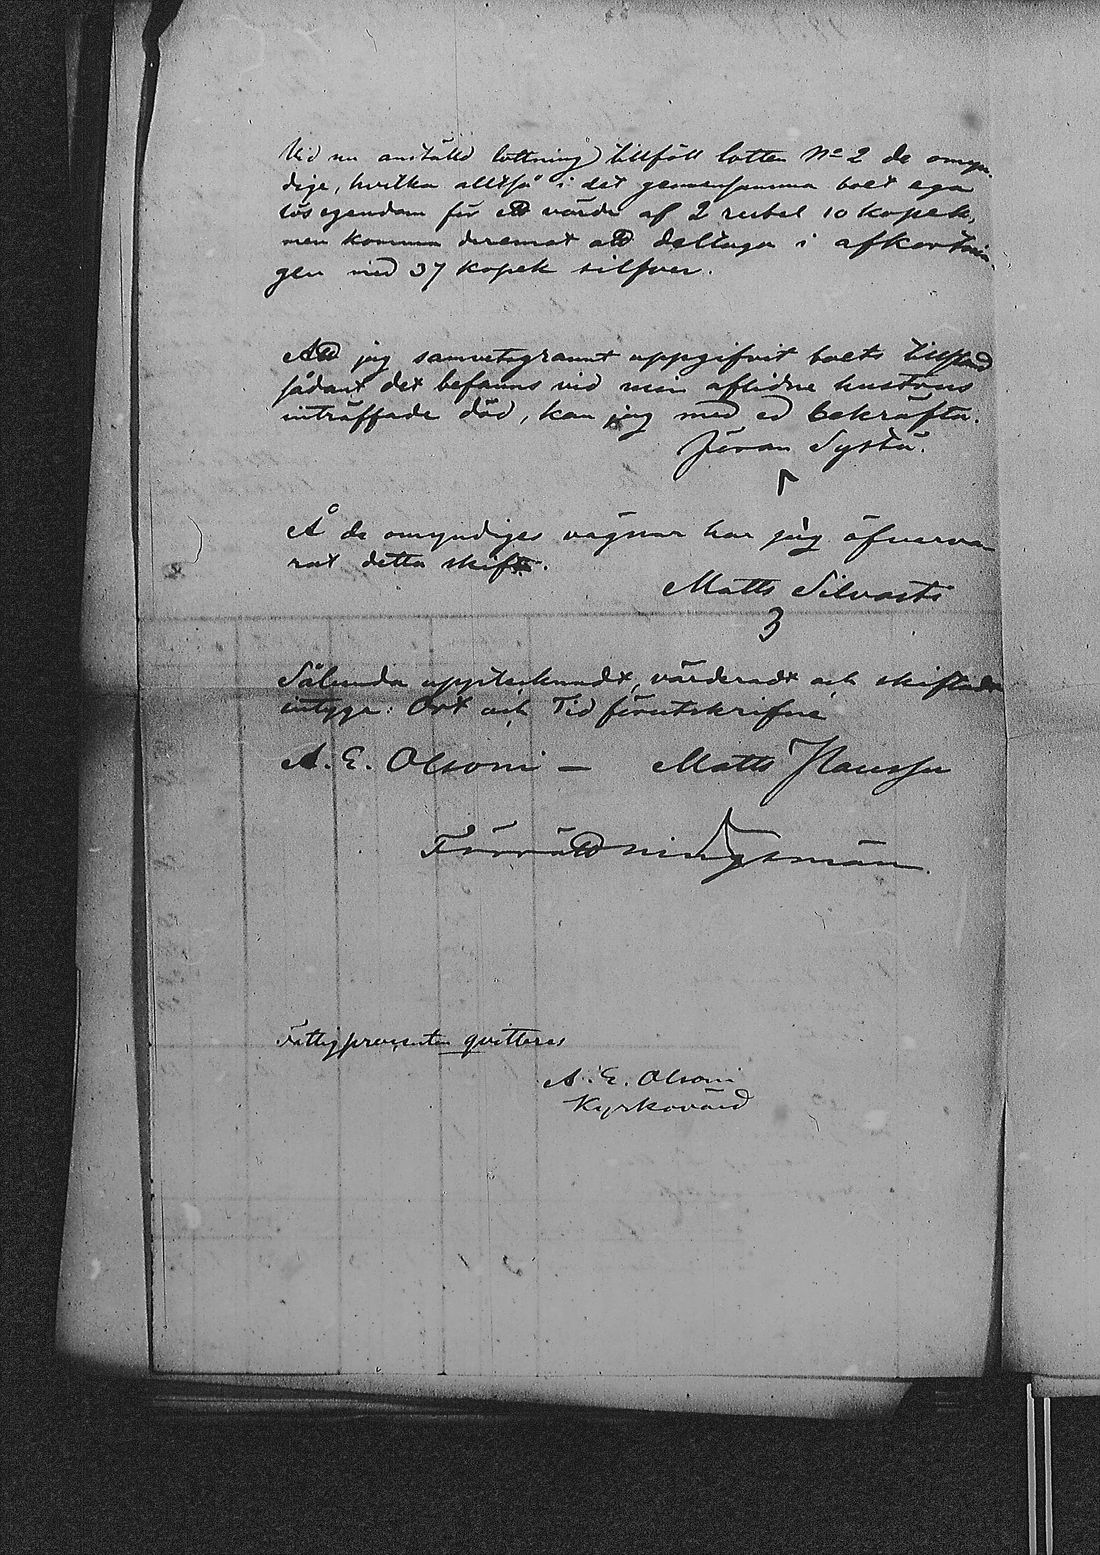 Vid nu anstäld lottning tillföll lotten No 2 de omyn-
dige, hvilka alltså i det gemensamma boet ega
lösegendom för ett värde af 2 rubel 10 kopek,
men komma deremot att deltaga i afkortnin-
gen med 37 kopek silfver.
Att jag samvetsgrannt uppgifvit boets tillstånd
sådant det befanns vid min aflidne hustrus
inträffade död, kan jag med ed bekräfta.
Jöran Systä.
Å de omyndiges vägnar har jag öfverva-
rat detta skifte.
Matts Silvasti
Sålunda upptecknadt, värderadt och skiftadt
intyga: Ort och Tid förutskrifne
A. E. Olsoni — Matts Hansson
Förrättningsmän
Fattigprocenten qvitteras
A. E. Olsoni
Kyrkovärd